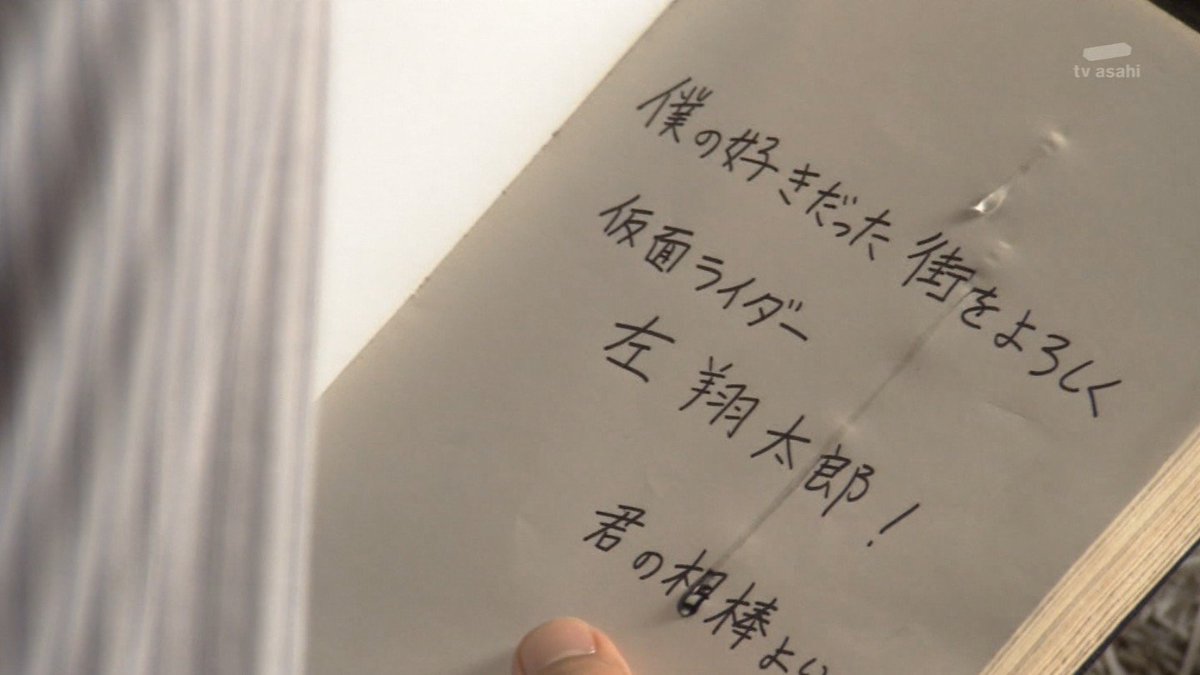 tv asahi
僕の好きだった街をよろしく
仮面ライダー
左 翔太郎!
君の相棒より